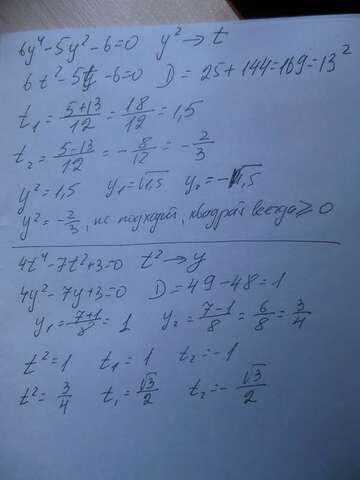 6y⁴-5y²-6=0   y² → t
6t²-5t-6=0   D = 25+144=169=13²
t₁ = (5+13)/12 = 18/12 = 1,5
t₂ = (5-13)/12 = -8/12 = -2/3
y² = 1,5   y₁ = √1,5   y₂ = -√1,5
y² = -2/3, не подходит, квадрат всегда ≥ 0
4t⁴-7t²+3=0   t² → y
4y²-7y+3=0   D = 49-48=1
y₁ = (7+1)/8 = 1   y₂ = (7-1)/8 = 6/8 = 3/4
t² = 1   t₁ = 1   t₂ = -1
t² = 3/4   t₁ = √3/2   t₂ = -√3/2